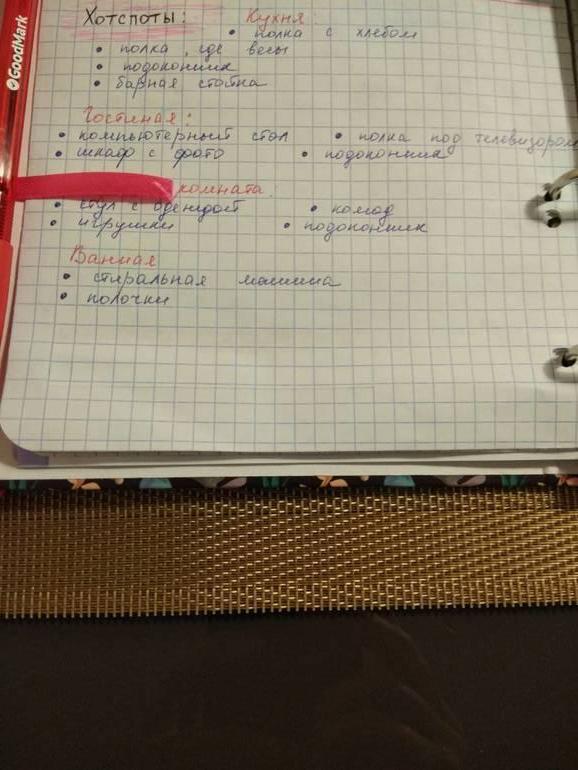 GoodMark
Хотспоты: Кухня:
• полка с хлебом
• полка, где весы
• подоконник
• барная стойка
Гостиная:
• компьютерный стол • полка под телевизором
• шкаф с фото • подоконник
комната:
• стул с одеждой • комод
• игрушки • подоконник
Ванная
• стиральная машина
• полочки